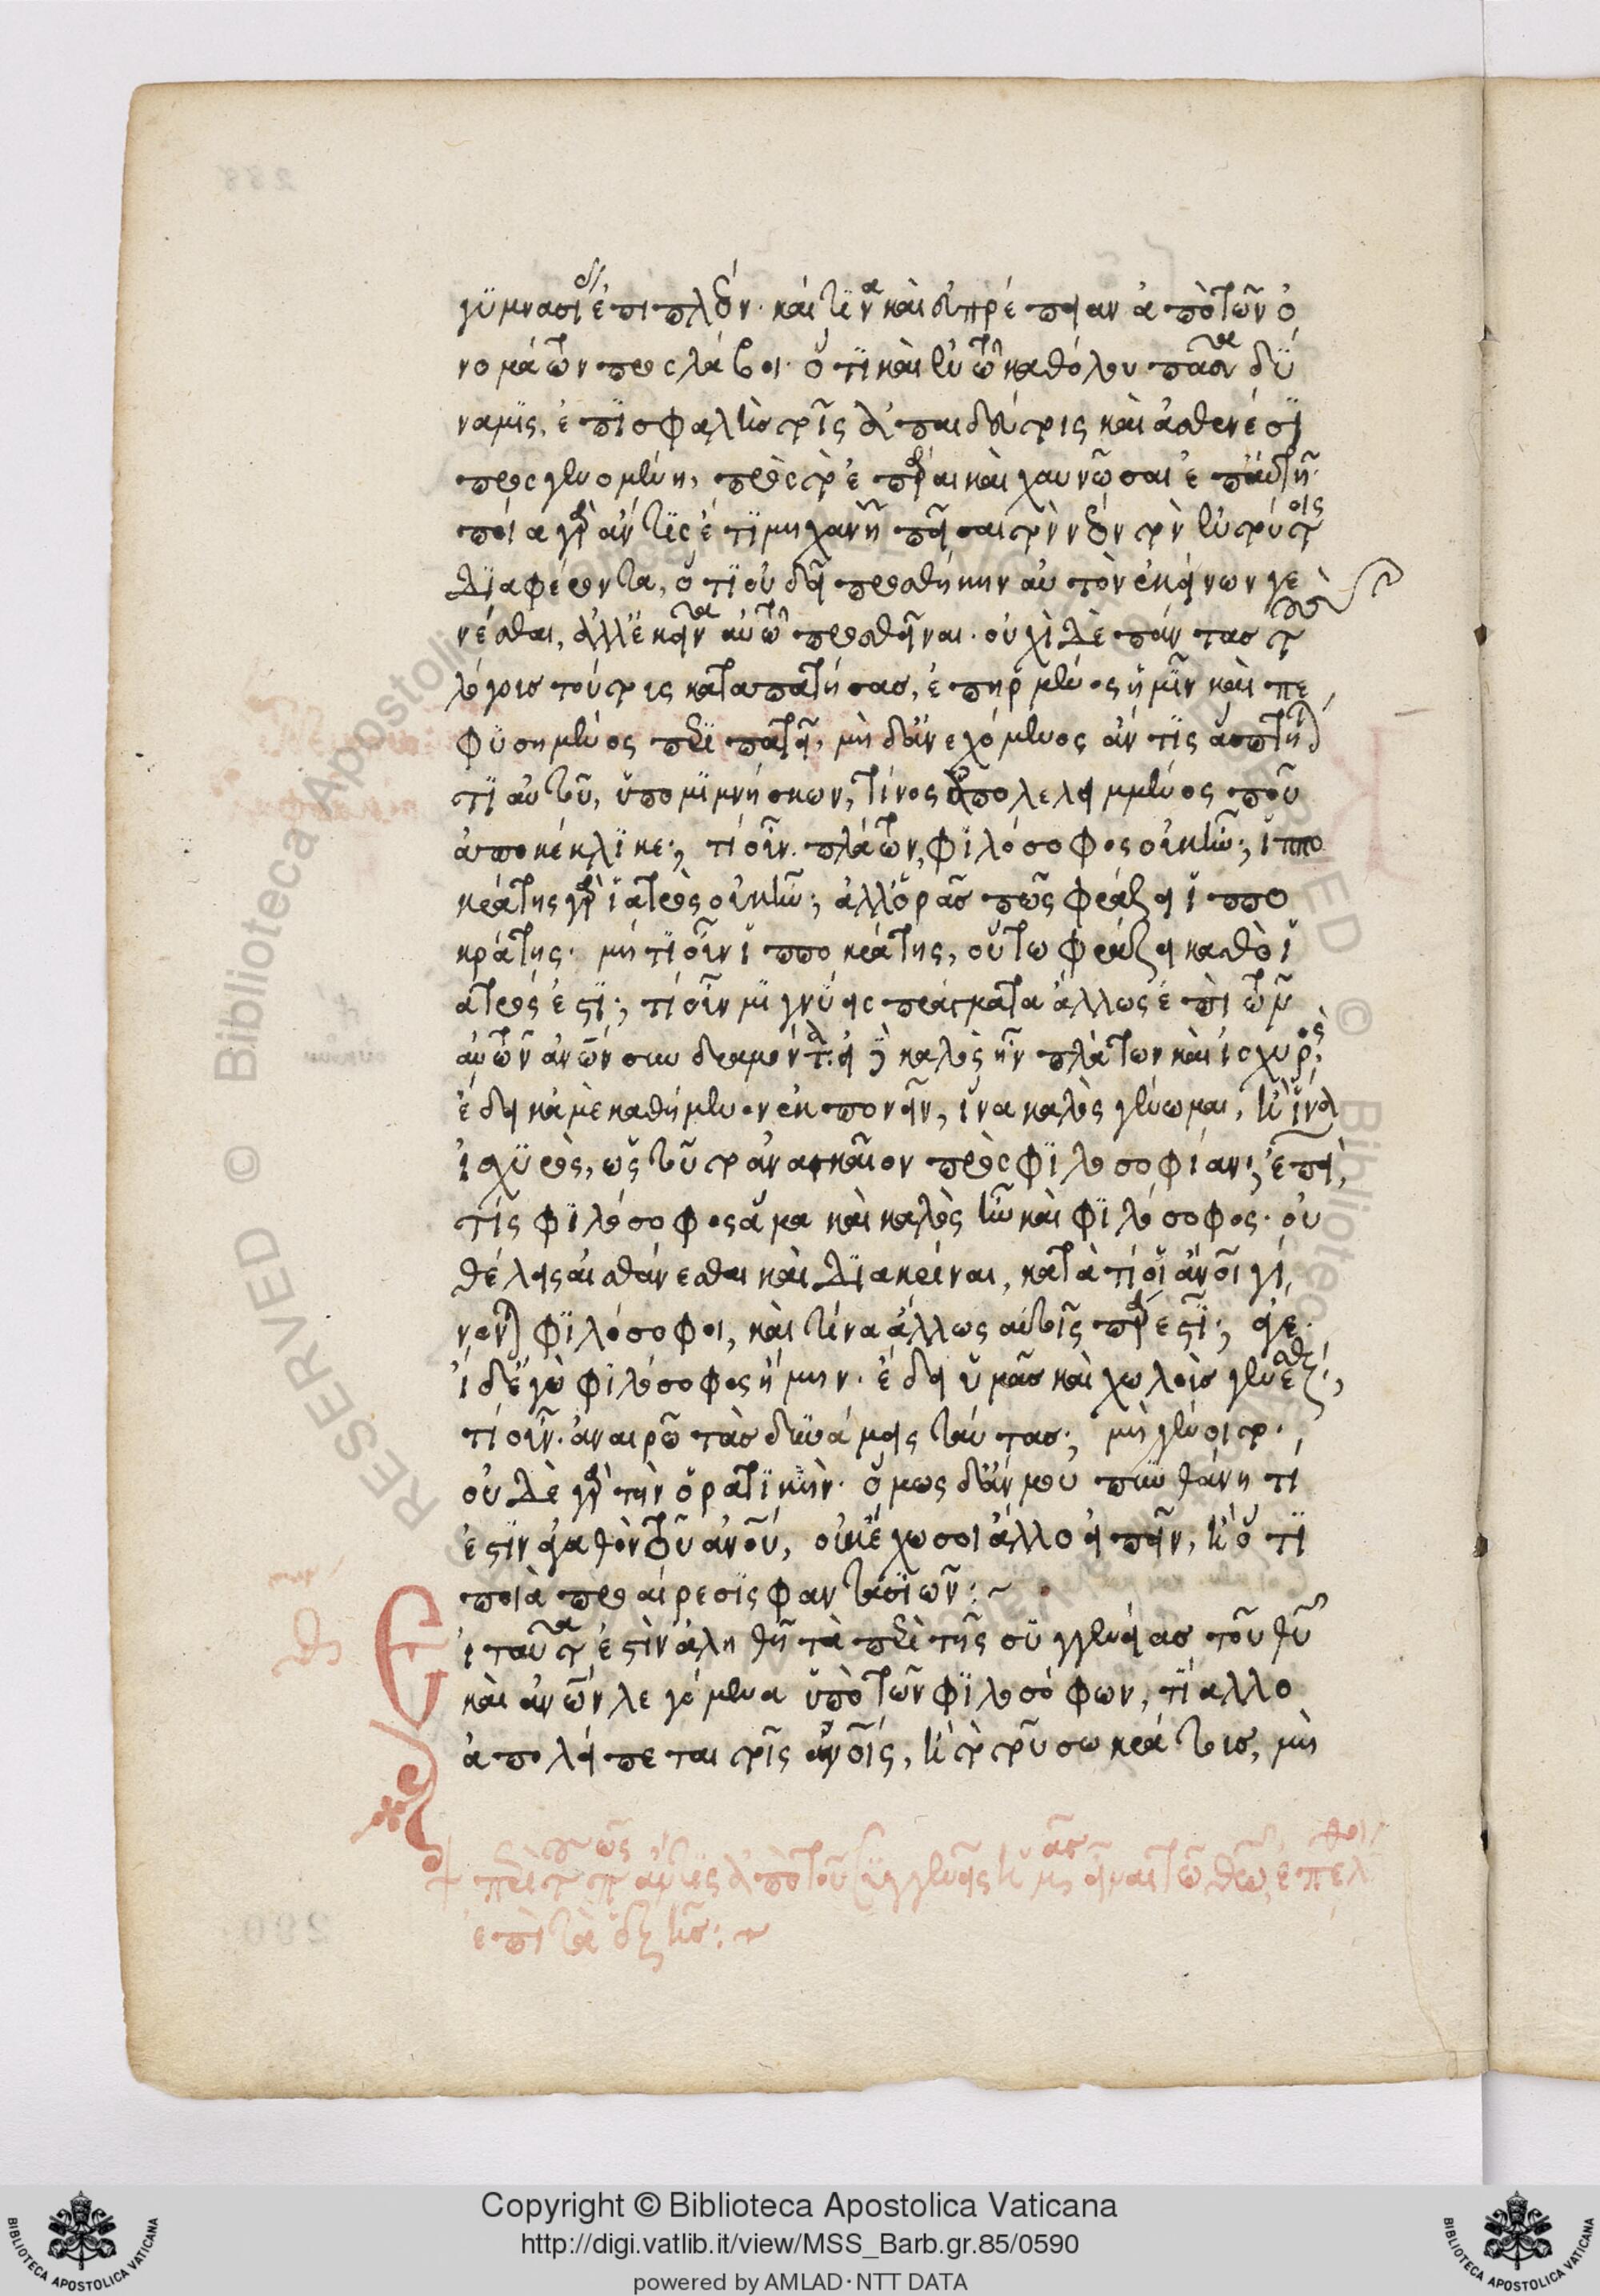 γυμνασθῇ ἐπιπλέον· καί τινα καὶ εὐπρέπειαν ἀπὸ τῶν ὀ
νομάτων προσλάβοι· ὅτι καὶ ἐν τῷ καθόλου πᾶσα δύ
ναμις, ἐπισφαλὴς τοῖς ἀπαιδεύτοις καὶ ἀσθενέσι
προσγενομένη, πρὸς τὸ ἐπᾶραι καὶ χαυνῶσαι ἐπ' αὐτῇ·
ποίᾳ γὰρ ἄν τις ἔτι μηχανῇ πείσαι τὸν νέον τὸν ἐν τούτοις
διαφέροντα, ὅτι οὐ δεῖ προσθήκην αὐτὸν ἐκείνων γε
νέσθαι, ἀλλ' ἐκεῖνα αὐτῷ προσθεῖναι· οὐχὶ δὲ πάντας τοὺς
λόγους τούτους καταπατήσας, ἐπηρμένος ἡμῖν καὶ πε
φυσημένος περιπατεῖ, μηδ' ἀνεχόμενος ἄν τις ἅπτηται
τι αὐτοῦ, ὑπομιμνήσκων, τίνος ἀπολελειμμένος ποῦ
ἀποκέκλικε; τί οὖν. πλάτων, φιλόσοφος οὐκ ἦν; ἱππο
κράτης γὰρ ἰατρὸς οὐκ ἦν; ἀλλ' ὁρᾷς πῶς φράζει ἱππο
κράτης· μή τι οὖν ἱπποκράτης, οὕτω φράζει καθὸ ἰ
ατρός ἐστι; τί οὖν μιγνύεις πράγματα ἄλλως ἐπὶ τῶν
αὐτῶν ἀνθρώπων συνδραμόντα· εἰ δὲ καλὸς ἦν πλάτων καὶ ἰσχυρός,
ἔδει κἀμὲ καθήμενον ἐκπονεῖν, ἵνα καλὸς γένωμαι, ἢ ἵνα
ἰσχυρὸς, ὡς τοῦτο ἀναγκαῖον πρὸς φιλοσοφίαν; ἐπεί
τις φιλόσοφος ἅμα καὶ καλὸς ἦν καὶ φιλόσοφος· οὐ
θέλεις αἰσθάνεσθαι καὶ διακρῖναι, κατὰ τί οἱ ἄνθρωποι γί
νονται φιλόσοφοι, καὶ τίνα ἄλλως αὐτοῖς πάρεστι; ἄγε·
εἰ δ' ἐγὼ φιλόσοφος ἤμην· ἔδει ὑμᾶς καὶ χωλοὺς γενέσθαι;
τί οὖν. ἀναιρῶ τὰς δυνάμεις ταύτας; μὴ γένοιτο·
οὐδὲ γὰρ τὴν ὁρατικήν· ὅμως δ' ἄν μου πυνθάνῃ τί
ἐστιν ἀγαθὸν τοῦ ἀνθρώπου, οὐκ ἔχω σοι ἄλλο εἰπεῖν, ἢ ὅτι
ποιὰ προαίρεσις φαντασιῶν:~
θ
Εἰ ταῦτα ἐστὶν ἀληθῆ τὰ περὶ τῆς συγγενείας τοῦ θεοῦ
καὶ ἀνθρώπων λεγόμενα ὑπὸ τῶν φιλοσόφων, τί ἄλλο
ἀπολείπεται τοῖς ἀνθρώποις, ἢ τὸ τοῦ σωκράτους, μὴ
πῶς ἀπὸ τοῦ συγγενεῖς ἡμᾶς εἶναι τῷ θεῷ, ἐπέλθοι
ἐπὶ τὰ ἑξῆς:~